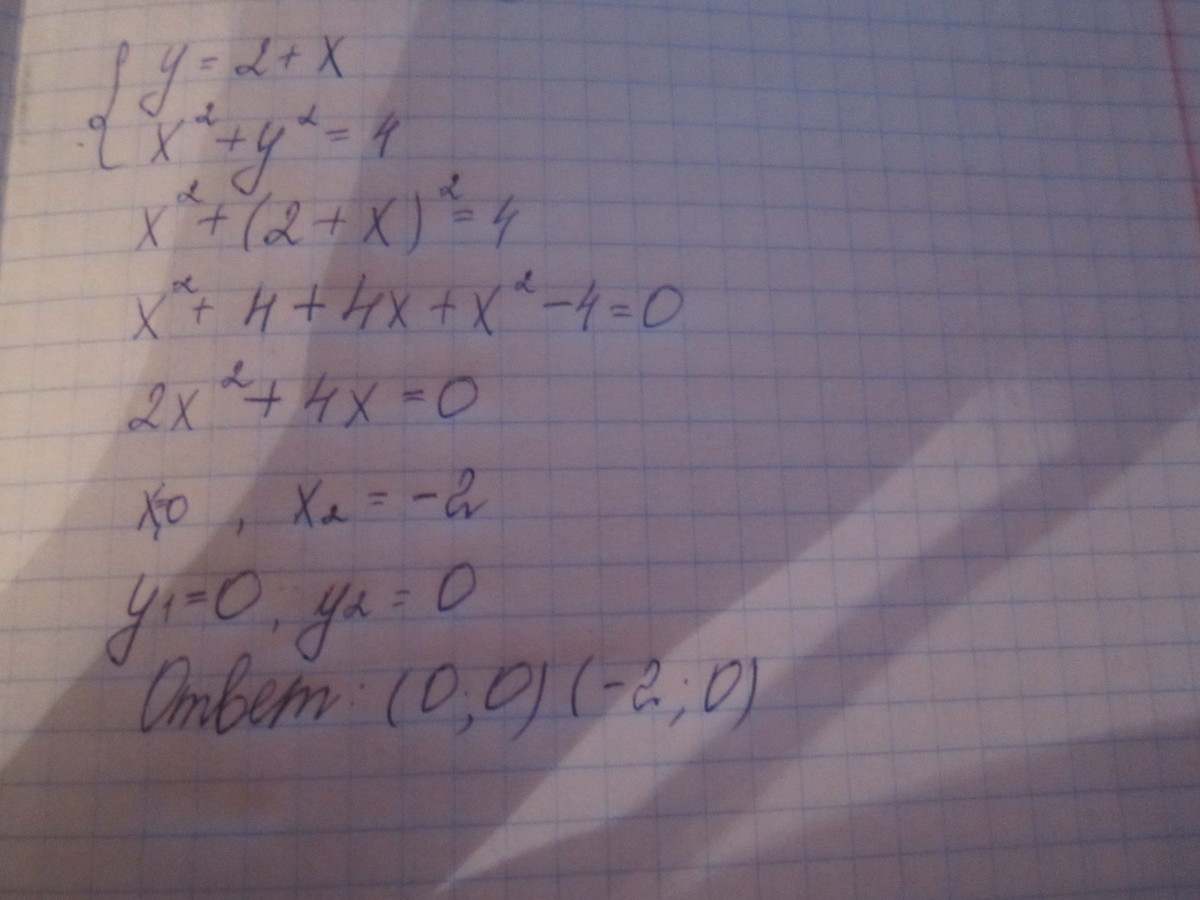 { y = 2 + x
x² + y² = 4
x² + (2 + x)² = 4
x² + 4 + 4x + x² - 4 = 0
2x² + 4x = 0
x₁=0 , x₂ = -2
y₁ = 0 , y₂ = 0
Ответ: (0; 0) (-2; 0)